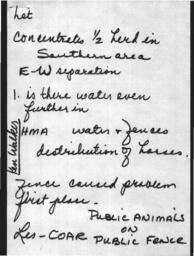 Let
Concentrates 1/2 herd in
Southern area
E-W separation
1. is there water even
further in
HMA water & fences
distribution of horses.
Ken Walker
Fence caused problem
first place.
PUBLIC ANIMALS
ON
Les-COAR PUBLIC FENCE